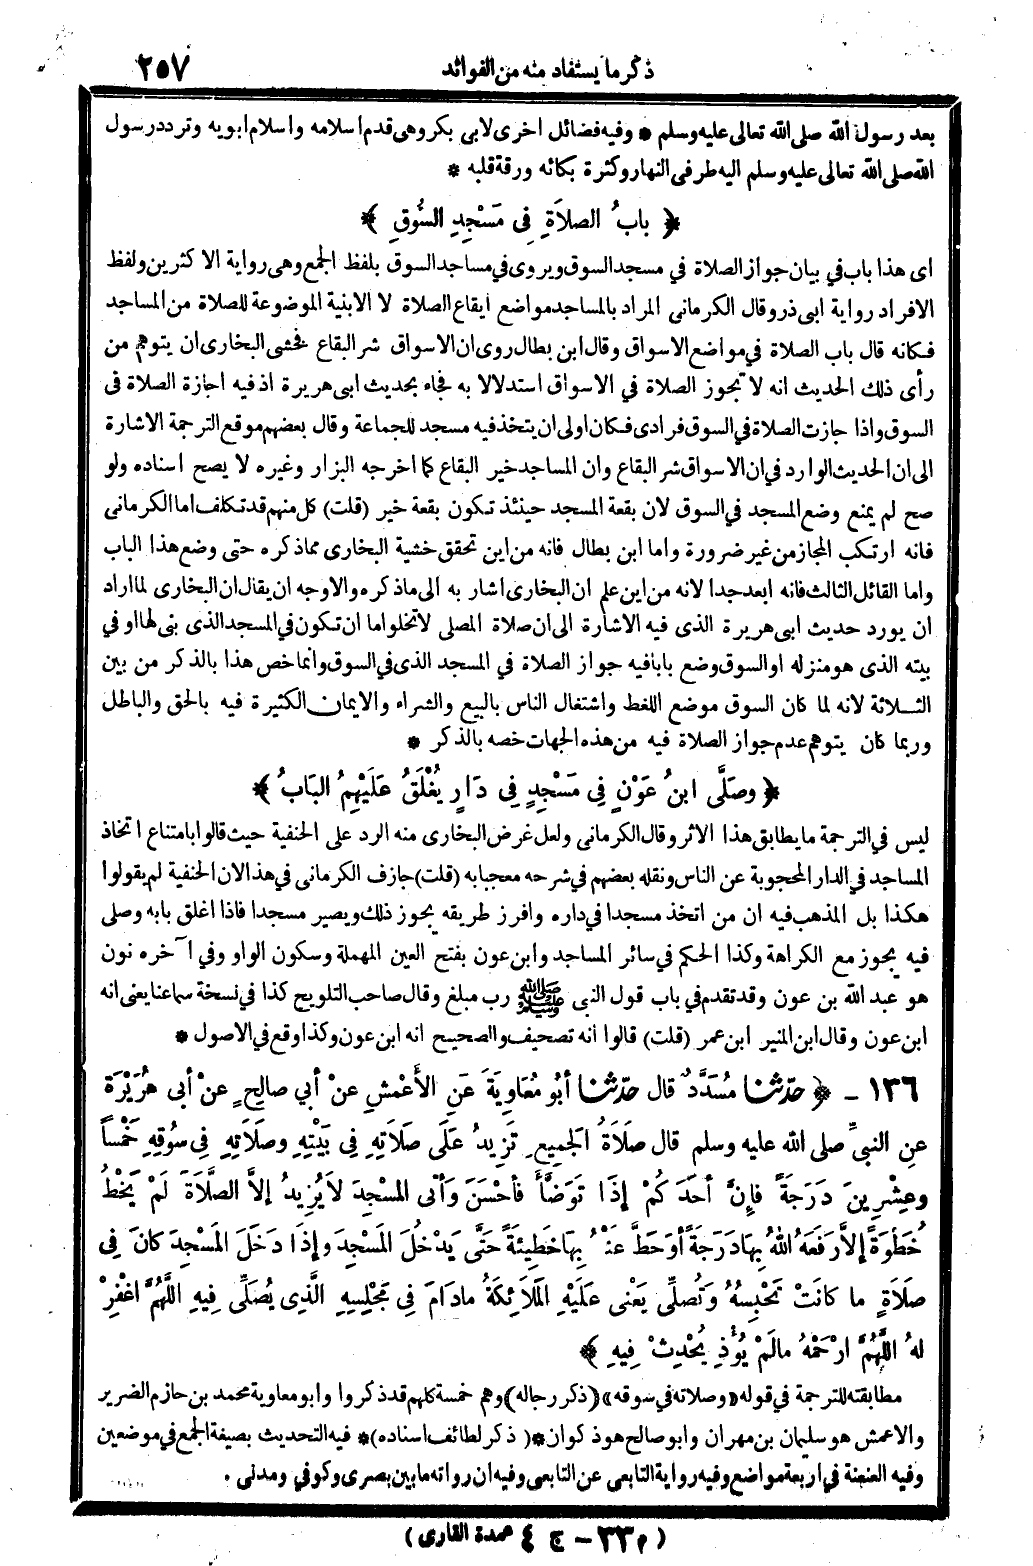 ذكر ما يستفاد منه من الفوائد
٢٥٧
بعد رسول الله صلى الله تعالى عليه وسلم * وفيه فضائل اخرى لابى بكر وهى قدم اسلامه واسلام ابويه وتردد رسول
الله صلى الله تعالى عليه وسلم اليه طرفى النهار وكثرة بكائه ورقة قلبه *
﴿ بابُ الصلاَةِ فِى مَسْجِدِ السُّوقِ ﴾
اى هذا باب في بيان جواز الصلاة في مسجد السوق ويروى في مساجد السوق بلفظ الجمع وهى رواية الاكثرين ولفظ
الافراد رواية ابى ذر وقال الكرمانى المراد بالمساجد مواضع ايقاع الصلاة لا الابنية الموضوعة للصلاة من المساجد
فكانه قال باب الصلاة في مواضع الاسواق وقال ابن بطال روى ان الاسواق شر البقاع فخشى البخارى ان يتوهم من
رأى ذلك الحديث انه لا تجوز الصلاة في الاسواق استدلالا به فجاء بحديث ابى هريرة اذ فيه اجازة الصلاة فى
السوق واذا جازت الصلاة في السوق فرادى فكان اولى ان يتخذ فيه مسجد للجماعة وقال بعضهم موقع الترجمة الاشارة
الى ان الحديث الوارد في ان الاسواق شر البقاع وان المساجد خير البقاع كما اخرجه البزار وغيره لا يصح اسناده ولو
صح لم يمنع وضع المسجد في السوق لان بقعة المسجد حينئذ تكون بقعة خير (قلت) كل منهم قد تكلف اما الكرمانى
فانه ارتكب المجاز من غير ضرورة واما ابن بطال فانه من اين تحقق خشية البخارى مما ذكره حتى وضع هذا الباب
واما القائل الثالث فانه ابعد جدا لانه من اين علم ان البخارى اشار به الى ما ذكره والاوجه ان يقال ان البخارى لما اراد
ان يورد حديث ابى هريرة الذى فيه الاشارة الى ان صلاة المصلى لا تخلو اما ان تكون في المسجد الذى بنى لها او في
بيته الذى هو منزله او السوق وضع بابا فيه جواز الصلاة في المسجد الذى في السوق وانما خص هذا بالذكر من بين
الثلاثة لانه لما كان السوق موضع اللغط واشتغال الناس بالبيع والشراء والايمان الكثيرة فيه بالحق والباطل
وربما كان يتوهم عدم جواز الصلاة فيه من هذه الجهات خصه بالذكر *
﴿ وصَلَّى ابنُ عَوْنٍ فِى مَسْجِدٍ فِى دَارٍ يُغْلَقُ عَلَيْهِمُ البَابُ ﴾
ليس في الترجمة ما يطابق هذا الاثر وقال الكرمانى ولعل غرض البخارى منه الرد على الحنفية حيث قالوا بامتناع اتخاذ
المساجد في الدار المحجوبة عن الناس ونقله بعضهم في شرحه معجبا به (قلت) جازف الكرمانى في هذا لان الحنفية لم يقولوا
هكذا بل المذهب فيه ان من اتخذ مسجدا في داره وافرز طريقه يجوز ذلك ويصير مسجدا فاذا اغلق بابه وصلى
فيه يجوز مع الكراهة وكذا الحكم في سائر المساجد وابن عون بفتح العين المهملة وسكون الواو وفي آخره نون
هو عبد الله بن عون وقد تقدم في باب قول النبى ﷺ رب مبلغ وقال صاحب التلويح كذا في نسخة سماعنا يعنى انه
ابن عون وقال ابن المنير ابن عمر (قلت) قالوا انه تصحيف والصحيح انه ابن عون وكذا وقع في الاصول *
١٣٦ - ﴿ حدّثنا مُسَدَّدٌ قال حدّثنا أبُو مُعَاوِيَةَ عَنِ الأَعْمَشِ عنْ أبي صالِحٍ عنْ أبي هُرَيْرَةَ
عنِ النبيِّ صلى الله عليه وسلم قال صَلَاةُ الجَمِيعِ تَزِيدُ عَلَى صَلَاتِهِ فِى بَيْتِهِ وصَلَاتِهِ فِى سُوقِهِ خَمْساً
وعِشْرِينَ دَرَجَةً فإِنَّ أحَدَكُمْ إذَا تَوَضَّأَ فأحْسَنَ وَأتى المَسْجِدَ لاَ يُرِيدُ إلاَّ الصَّلَاةَ لَمْ يَخْطُ
خُطْوَةً إلاَّ رَفَعَهُ اللهُ بِهَا دَرَجَةً أوْ حَطَّ عنْهُ بِهَا خَطِيئَةً حَتَّى يَدْخُلَ المَسْجِدَ وإذَا دَخَلَ المَسْجِدَ كانَ فِى
صلَاةٍ ما كانَتْ تَحْبِسُهُ وَتُصَلِّى يَعْنى عَلَيْهِ المَلَائِكَةُ مادَامَ فِى مَجْلِسِهِ الَّذِى يُصَلِّى فِيهِ اللَّهُمَّ اغْفِرْ
لهُ اللَّهُمَّ ارْحَمْهُ مالَمْ يُؤْذِ يُحْدِثْ فِيهِ ﴾
مطابقته للترجمة في قوله «وصلاته في سوقه» (ذكر رجاله) وهم خمسة كلهم قد ذكروا وابو معاوية محمد بن حازم الضرير
والاعمش هو سليمان بن مهران وابو صالح هو ذكوان * (ذكر لطائف اسناده) * فيه التحديث بصيغة الجمع في موضعين
وفيه العنعنة في اربعة مواضع وفيه رواية التابعى عن التابعى وفيه ان رواته ما بين بصرى وكوفي ومدنى .
(م ٣٣ - ج ٤ عمدة القارى)